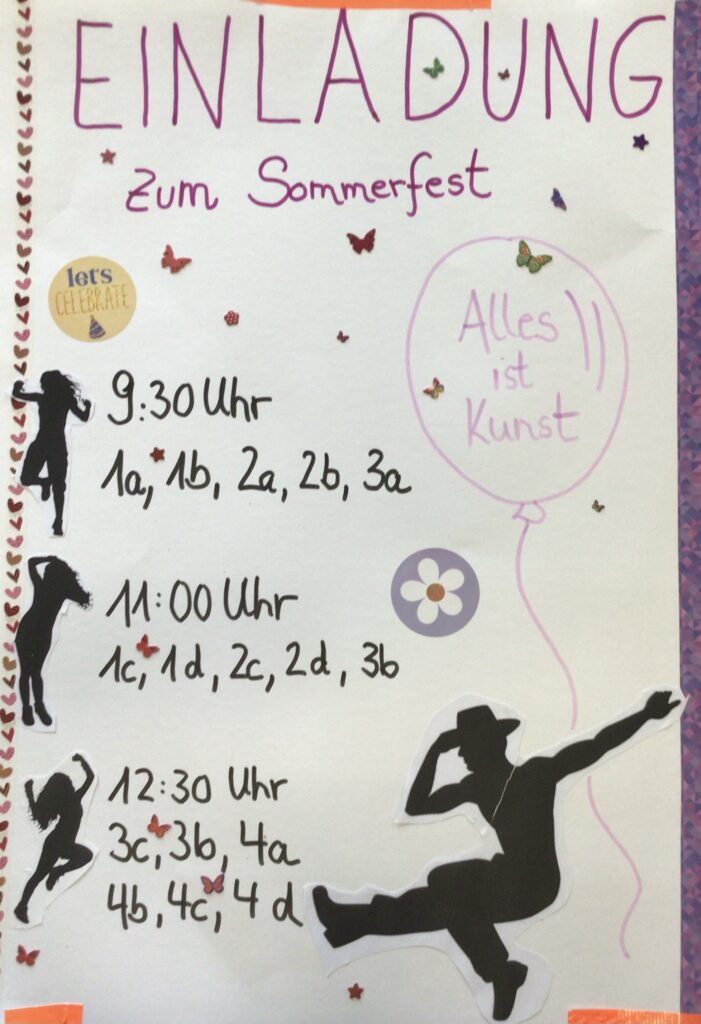 EINLADUNG
zum Sommerfest
let's
CELEBRATE
Alles
ist
Kunst
9:30 Uhr
1a, 1b, 2a, 2b, 3a
11:00 Uhr
1c, 1d, 2c, 2d, 3b
12:30 Uhr
3c, 3b, 4a
4b, 4c, 4d